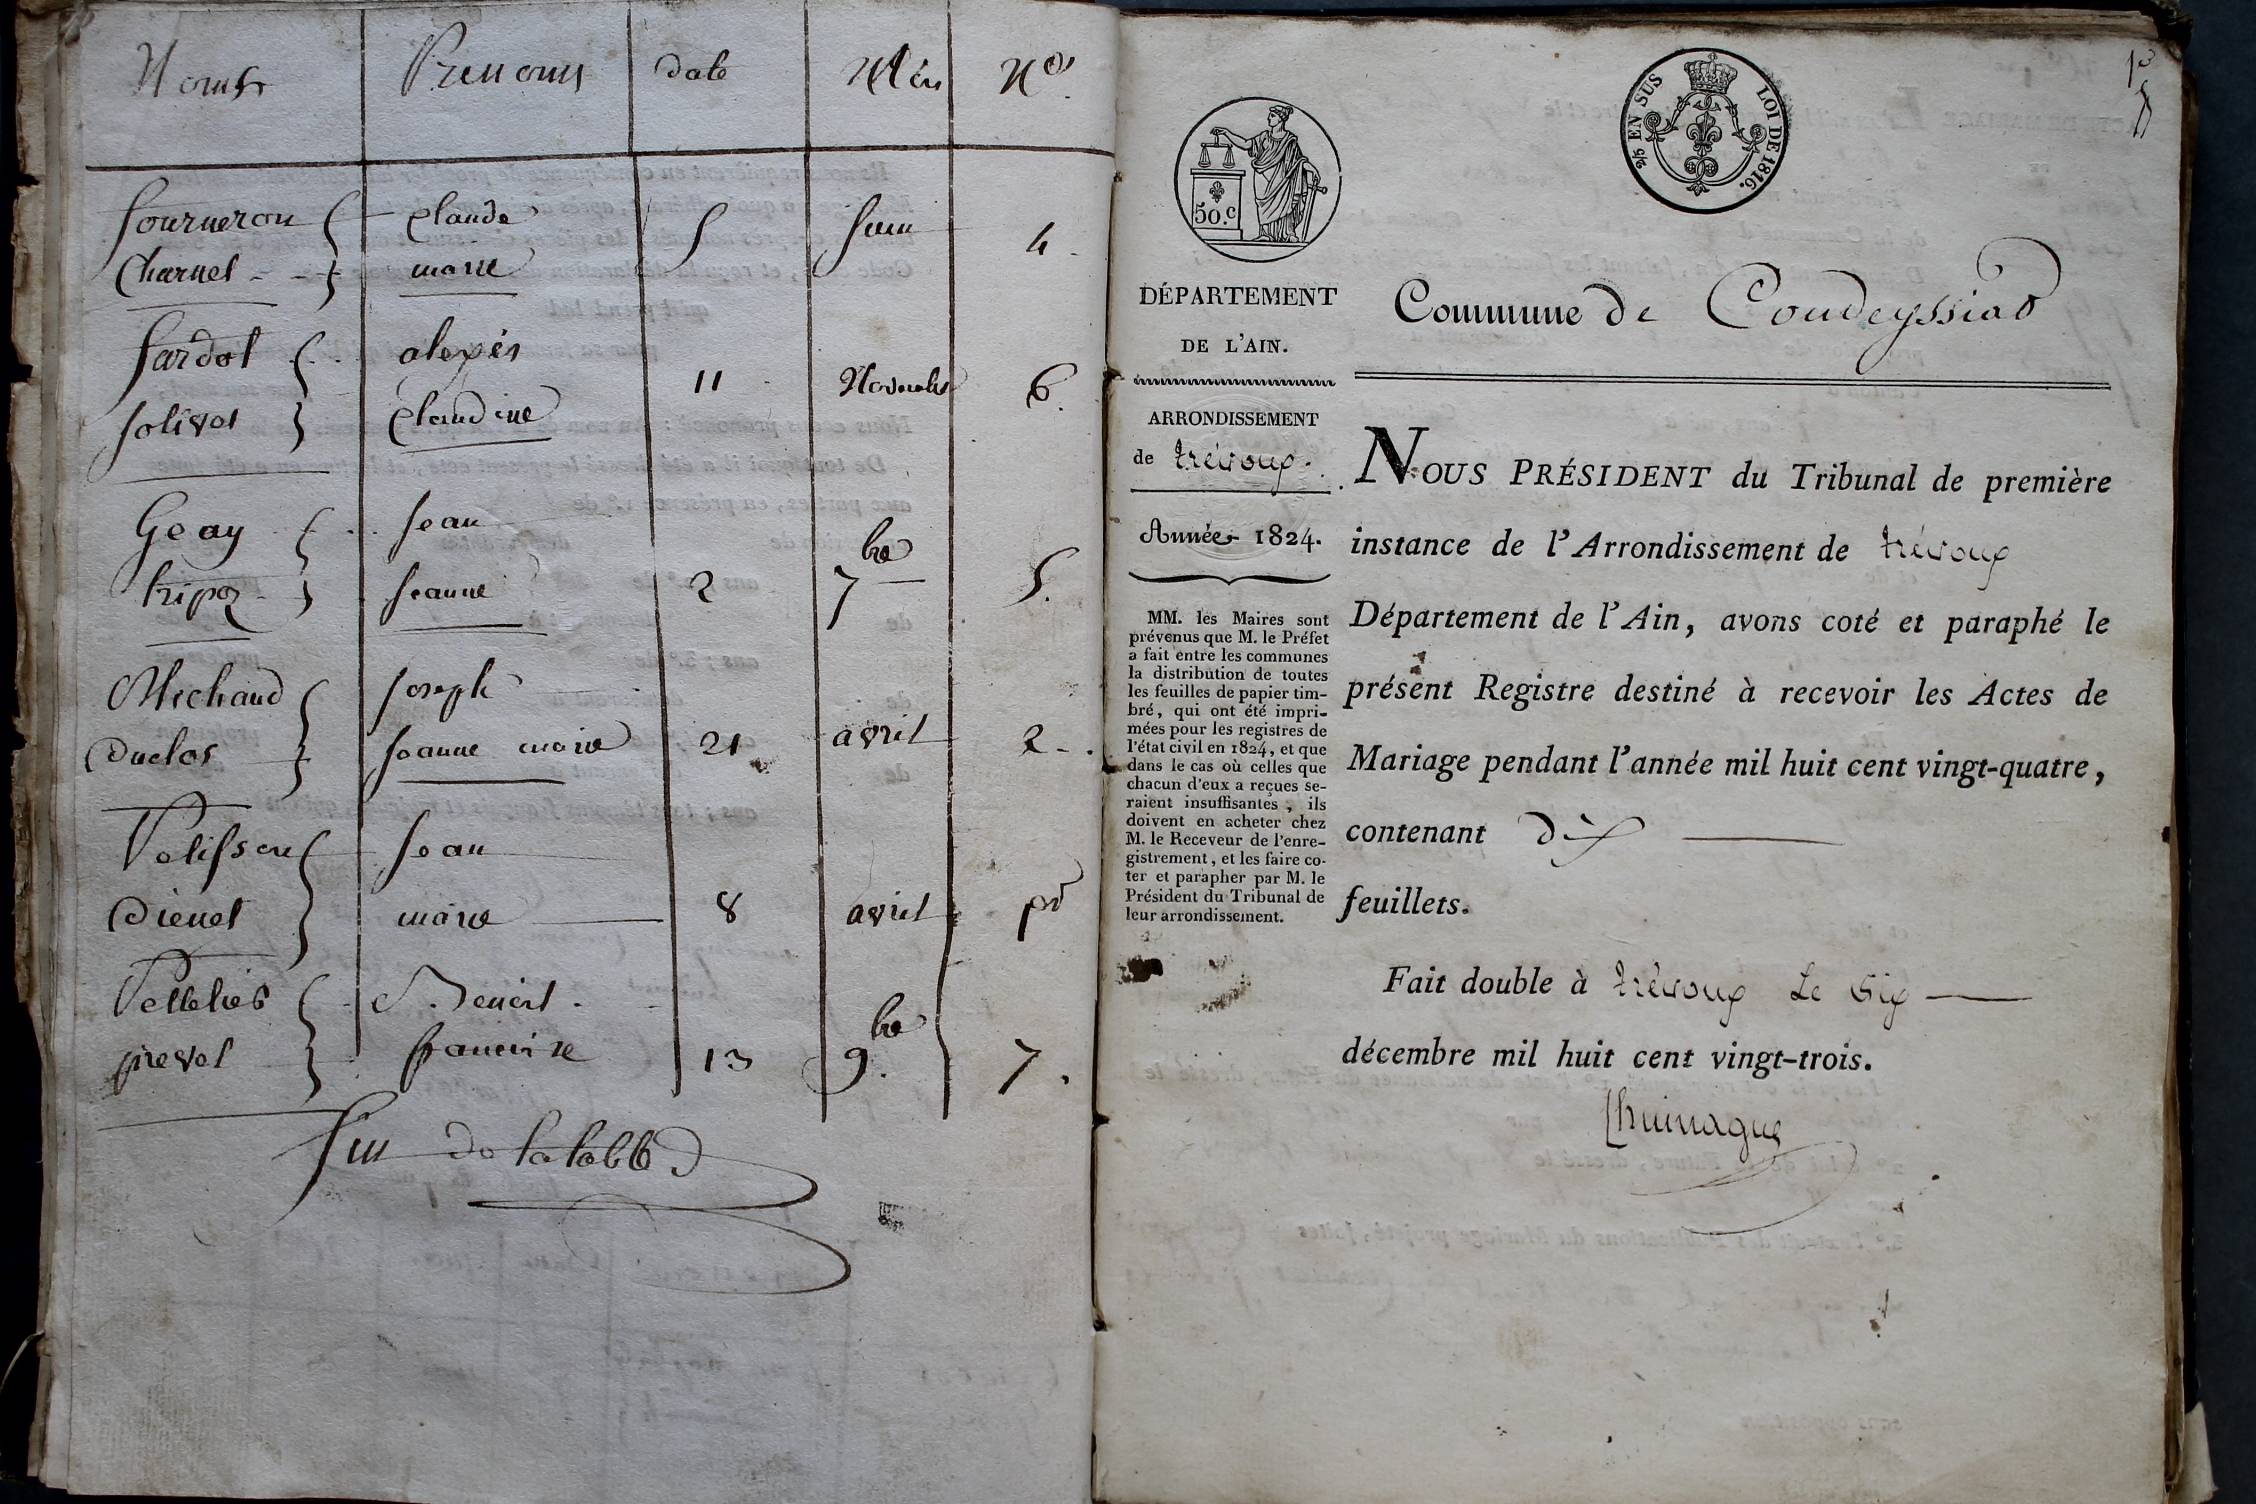 Noms Prenoms date Mois Nos
fourneron claude 5 Juin 4
Charnet marie
fardot alexis 11 Novembre 6.
Jolivot claudine
Geay Jean
tripoz Jeanne 2 7bre 5.
Michaud Joseph
Duclos Jeanne marie 21 avril 2
Pelisson Jean
Dienet marie 8 avril pr
Pelletier Benoit
prevet francoise 13 9bre 7.
fin de la table
EN SUS LOI DE 1816.
50.c
DÉPARTEMENT
DE L'AIN.
ARRONDISSEMENT
de trévoux.
Année 1824.
MM. les Maires sont
prévenus que M. le Préfet
a fait entre les communes
la distribution de toutes
les feuilles de papier tim-
bré, qui ont été impri-
mées pour les registres de
l'état civil en 1824, et que
dans le cas où celles que
chacun d'eux a reçues se-
raient insuffisantes, ils
doivent en acheter chez
M. le Receveur de l'enre-
gistrement, et les faire co-
ter et parapher par M. le
Président du Tribunal de
leur arrondissement.
Commune de Condeyssiat
NOUS PRÉSIDENT du Tribunal de première
instance de l'Arrondissement de trévoux
Département de l'Ain, avons coté et paraphé le
présent Registre destiné à recevoir les Actes de
Mariage pendant l'année mil huit cent vingt-quatre,
contenant dix
feuillets.
Fait double à trévoux Le Six
décembre mil huit cent vingt-trois.